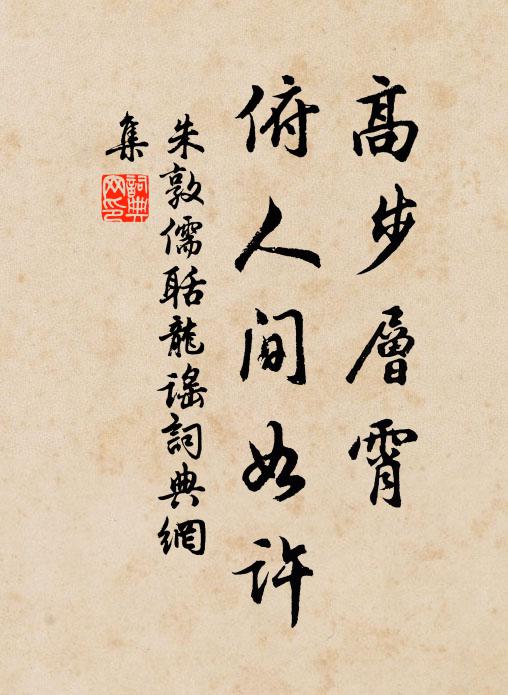 高步層霄
俯人間如許
朱敦儒聒龍謠詞典網
集
詞典
網印